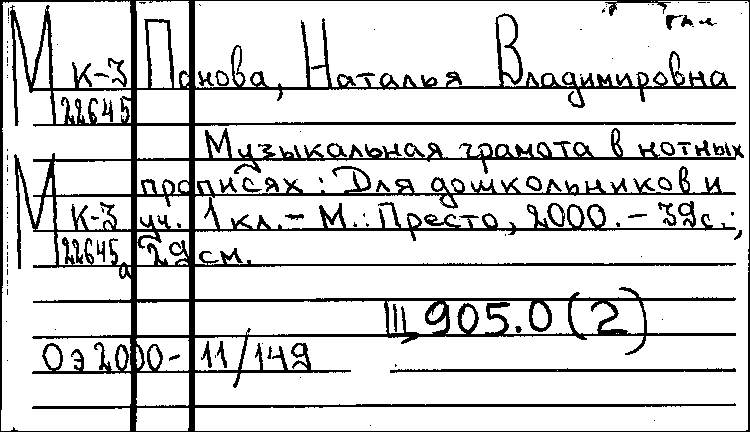 М К-3 Панова, Наталья Владимировна
22645
Музыкальная грамота в нотных
М прописях : Для дошкольников и
К-3 уч. 1 кл. – М. : Престо, 2000. – 39 с. ;
22645а 29 см.
Ш, 905.0 (2)
Оэ 2000- 11/149